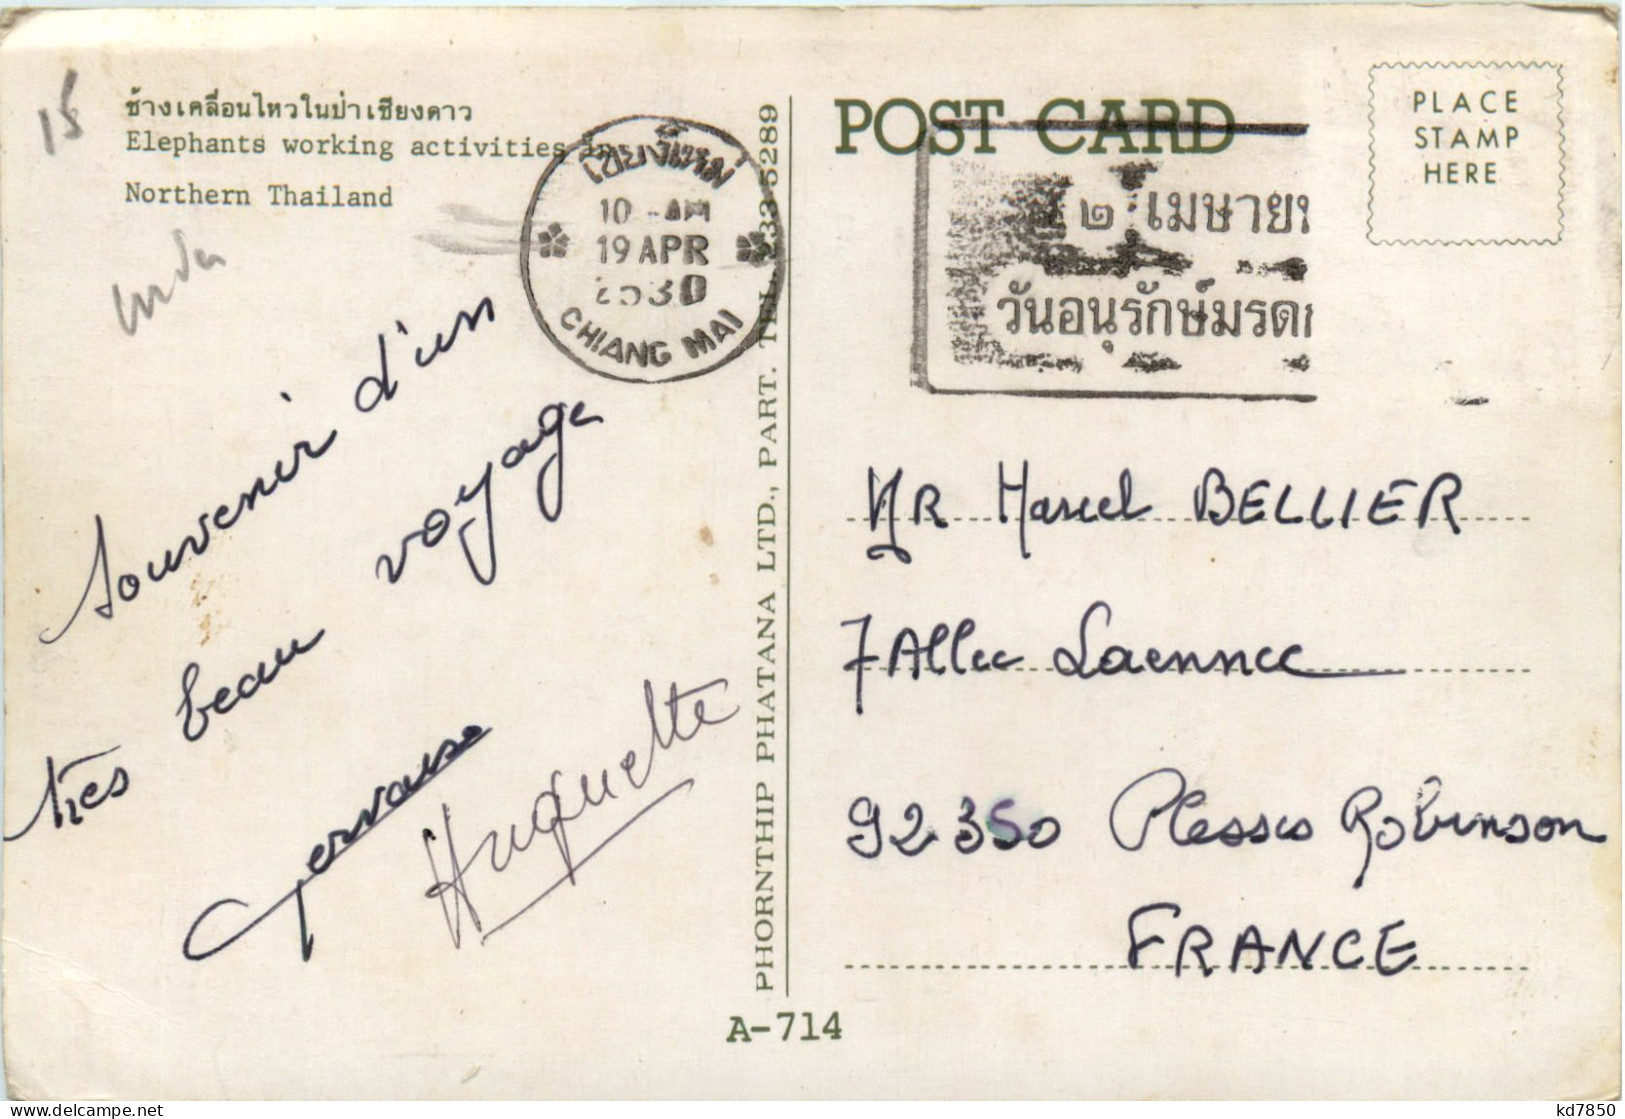 15
ช้างเคลื่อนไหวในป่าเชียงดาว
Elephants working activities in
Northern Thailand
เชียงใหม่
10 -AM
19 APR
2530
CHIANG MAI
Souvenir d'un
très beau voyage
Gervaise
Huguette
PHORNTHIP PHATANA LTD., PART. TEL. 233-5289
A-714
POST CARD
PLACE
STAMP
HERE
๒ เมษาย
วันอนุรักษ์มรดก
MR Marcel BELLIER
7 Allee Laennec
92350 Plessis Robinson
FRANCE
kd7850